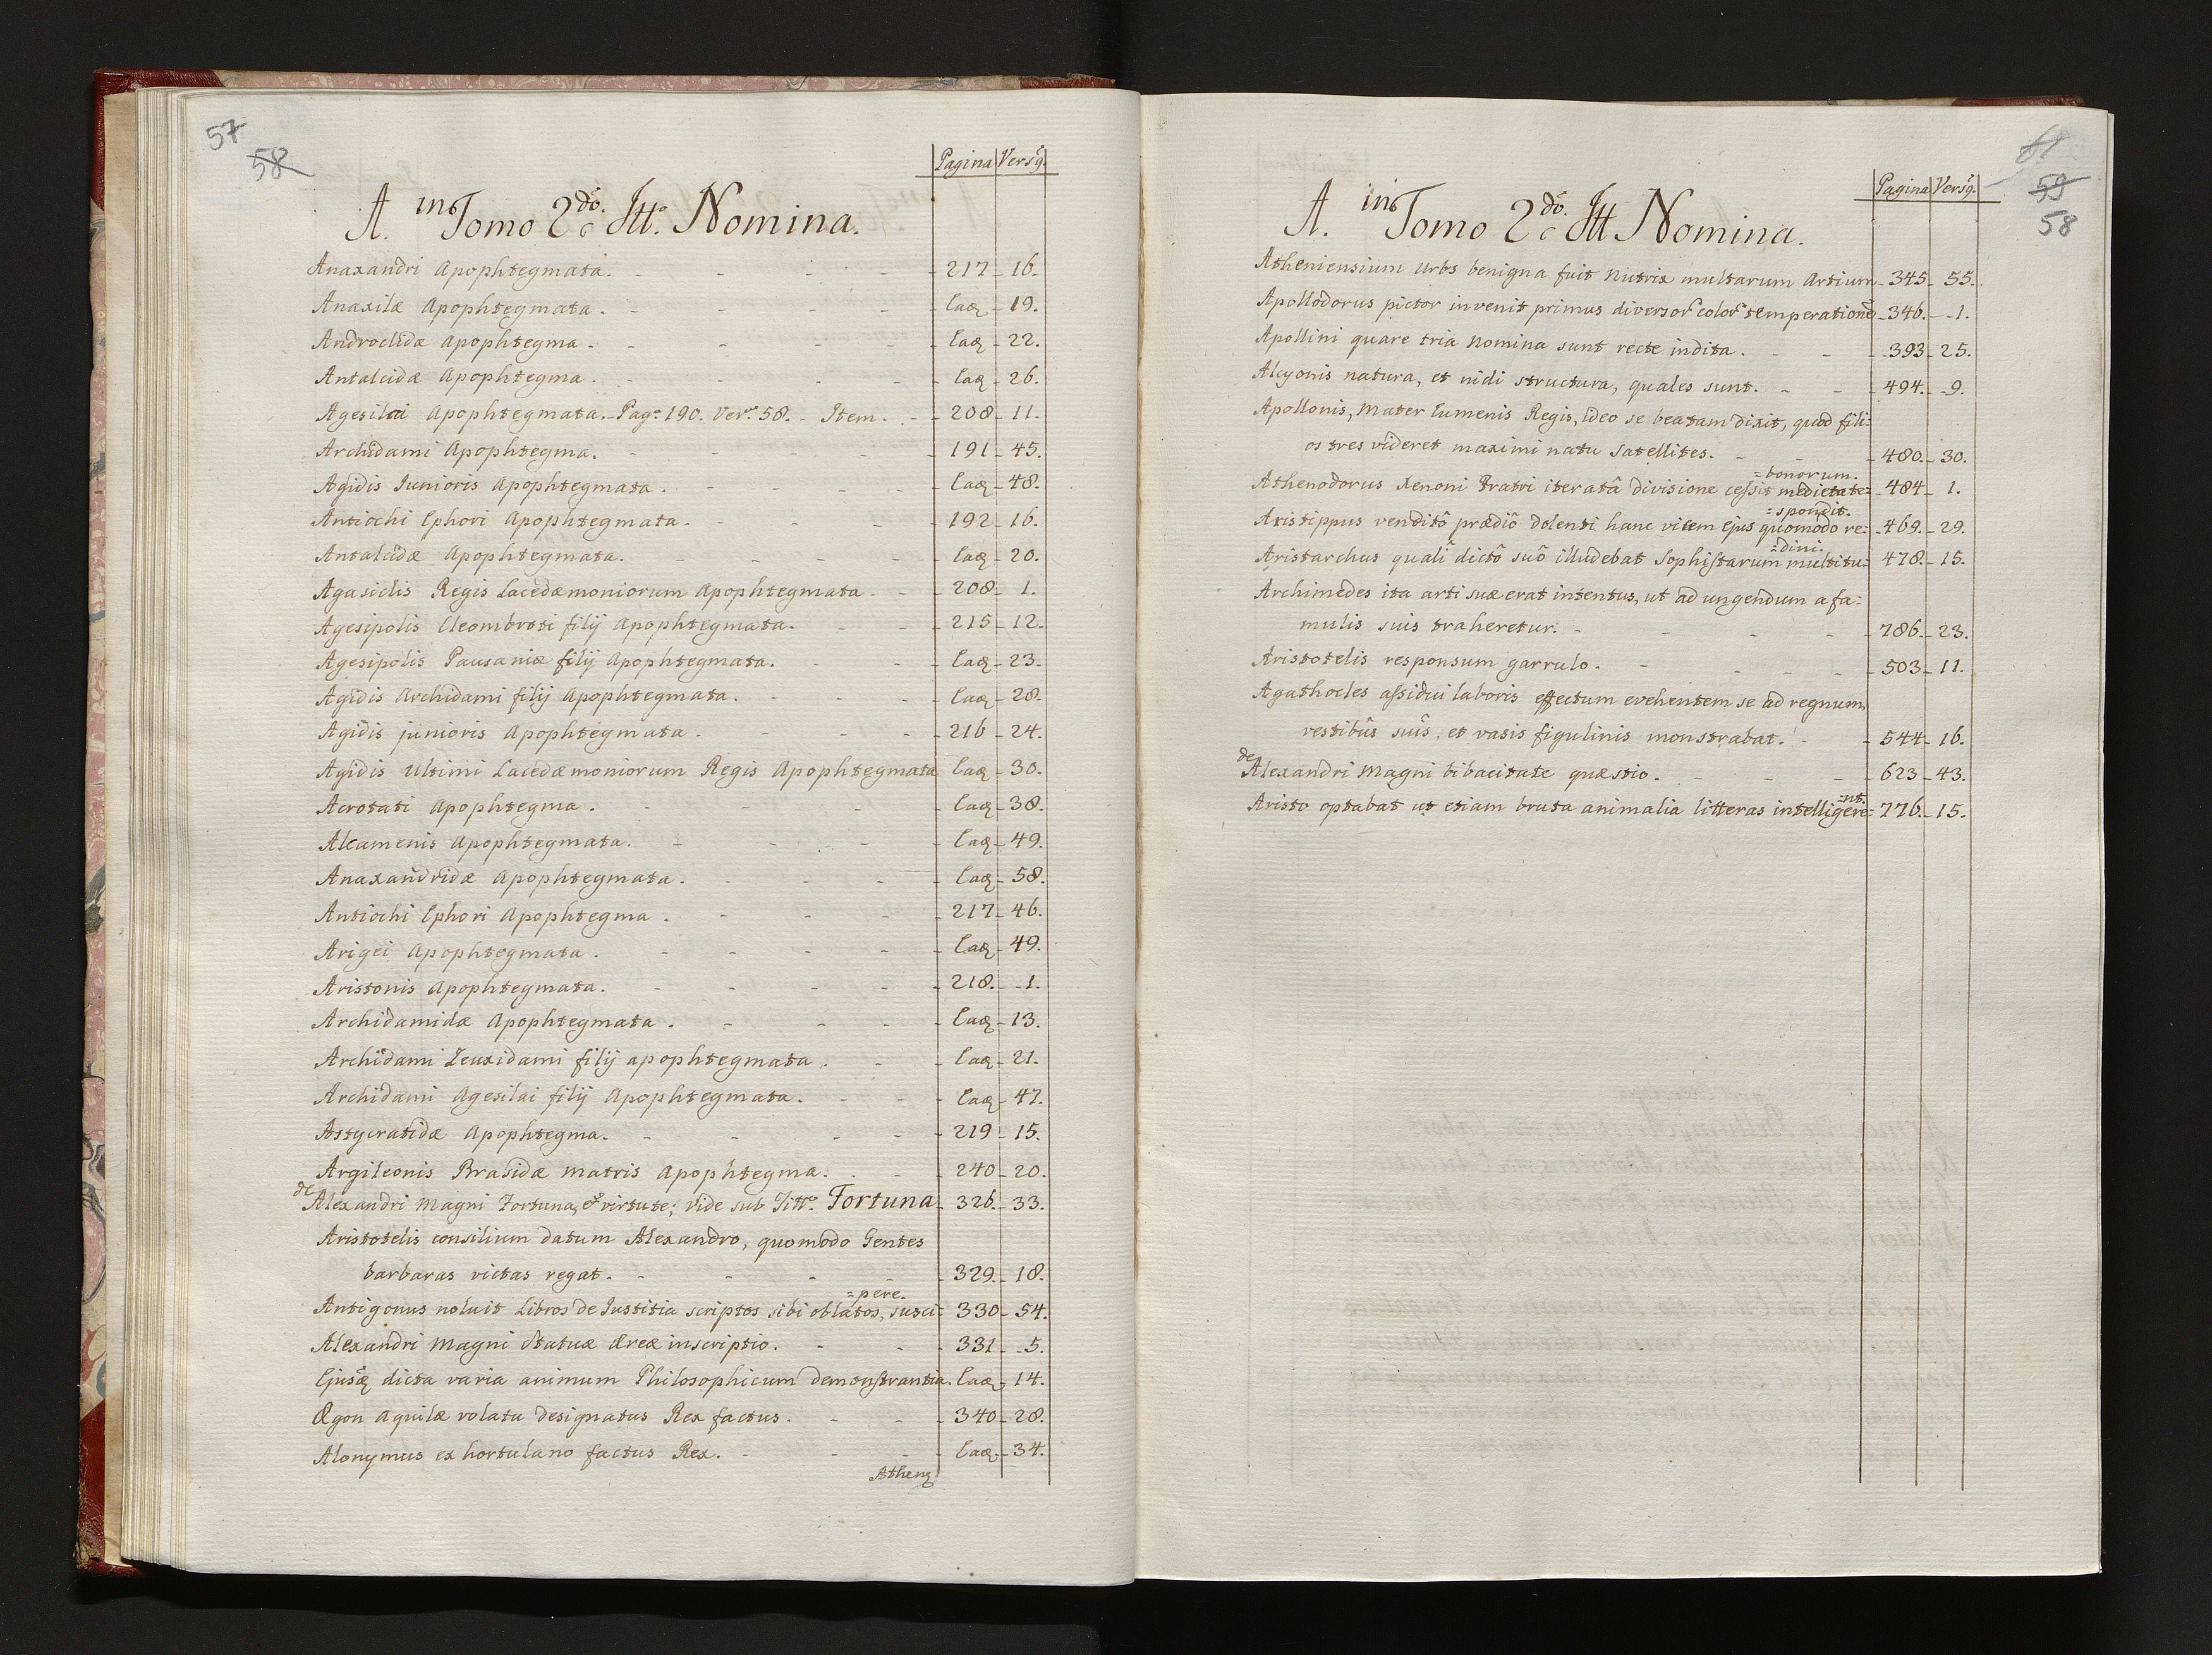 57
58
Pagina Versq.
A. in Tomo 2do. Ittº. Nomina.
Anaxandri Apophtegmata. - 217 - 16.
Anaxilæ Apophtegmata. - Eaq - 19.
Androclidæ Apophtegma. - Eaq - 22.
Antalcidæ Apophtegma. - Eaq - 26.
Agesilai Apophtegmata. - Pagª 190. Verº 58. - Item. - 208 - 11.
Archidami Apophtegma. - 191 - 45.
Agidis Iunioris Apophtegmata. - Eaq - 48.
Antiochi Ephori Apophtegmata. - 192 - 16.
Antalcidæ Apophtegmata. - Eaq - 20.
Agasidis Regis Lacedæmoniorum Apophtegmata. - 208 - 1.
Agesipolis Cleombroti filij Apophtegmata. - 215 - 12.
Agesipolis Pausaniæ filij Apophtegmata. - Eaq - 23.
Agidis Archidami filij Apophtegmata. - Eaq - 28.
Agidis junioris Apophtegmata. - 216 - 24.
Agidis Ultimi Lacedæmoniorum Regis Apophtegmata Eaq - 30.
Acrotati Apophtegma. - Eaq - 38.
Alcamenis Apophtegmata. - Eaq - 49.
Anaxandridæ Apophtegmata. - Eaq - 58.
Antiochi Ephori Apophtegma. - 217 - 46.
Arigei Apophtegmata. - Eaq - 49.
Aristonis Apophtegmata. - 218. - 1.
Archidamidæ Apophtegmata. - Eaq - 13.
Archidami Zeuxidami filij apophtegmata. - Eaq - 21.
Archidami Agesilai filij Apophtegmata. - Eaq - 47.
Astycratidæ Apophtegma. - 219 - 15.
Argileonis Brasidæ matris Apophtegma. - 240 - 20.
de Alexandri Magni Fortuna, & virtute; Vide sub Tittº. Fortuna - 326. - 33.
Aristotelis consilium datum Alexandro, quomodo Gentes
barbaras victas regat. - 329. - 18.
=pere.
Antigonus noluit Libros de Iustitia scriptos sibi oblatos, susci= 330 - 54.
Alexandri Magni Statuæ Æreæ inscriptio. - 331 - 5.
Ejusq dicta varia animum Philosophicum demonstrantia. Eaq - 14.
Ægon Aquilæ volatu designatus Rex factus. - 340 - 28.
Alonymus ex hortulano factus Rex. - Eaq - 34.
Athenq
61
59
58
Pagina Versq.
A. in Tomo 2do. Itt Nomina.
Atheniensium Urbs benigna fuit Nutrix multarum Artium - 345 - 55.
Apollodorus pictor invenit primus diversor color temperationē - 346. - 1.
Apollini quare tria Nomina sunt recte indita. - 393 - 25.
Alcyonis natura, et nidi structura, quales sunt. - 494. - 9.
Apollonis, Mater Eumenis Regis, ideo se beatam dixit, quod fili=
os tres videret maximi natu Satellites. - 480. - 30.
=bonorum.
Athenodorus Xenoni Fratri iteratâ divisione cessit medietate= 484 - 1.
=spondit.
Aristippus venditô prædiô dolenti hanc vicem ejus quomodo re= 469. - 29.
=dini.
Aristarchus quali dictô suô illudebat Sophistarum multitu= 478. - 15.
Archimedes ita arti suæ erat intentus, ut ad ungendum a fa=
mulis suis traheretur. - 786. - 23.
Aristotelis responsum garrulo. - 503 - 11.
Agathocles assidui laboris effectum evehentem se ad regnum,
vestibûs suîs, et vasis figulinis monstrabat. - 544 - 16.
de Alexandri Magni bibacitate quæstio. - 623 - 43.
=nt.
Aristo optabat ut etiam bruta animalia litteras intelligere= 776. - 15.